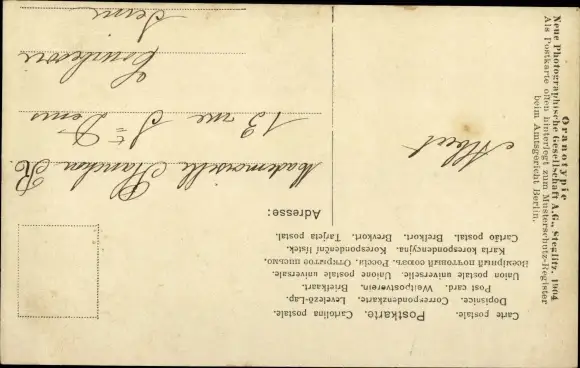 Carte postale. Postkarte. Cartolina postale.
Dopisnice. Correspondenzkarte. Levelező-Lap.
Post card. Weltpostverein. Briefkaart.
Union postale universelle. Unione postale universale.
Всемірный почтовый союзъ. Россія. Открытое письмо.
Karta korespondencyjna. Korespondenční lístek.
Cartão postal. Brefkort. Brevkort. Tarjeta postal.
Adresse:
Mademoiselle Blanchon R.
13 rue St Denis
Seine
Albert
Oranotypie
Neue Photographische Gesellschaft A.G., Steglitz, 1904
Als Postkarte offen hinterlegt zum Musterschutz-Register
beim Amtsgericht Berlin.